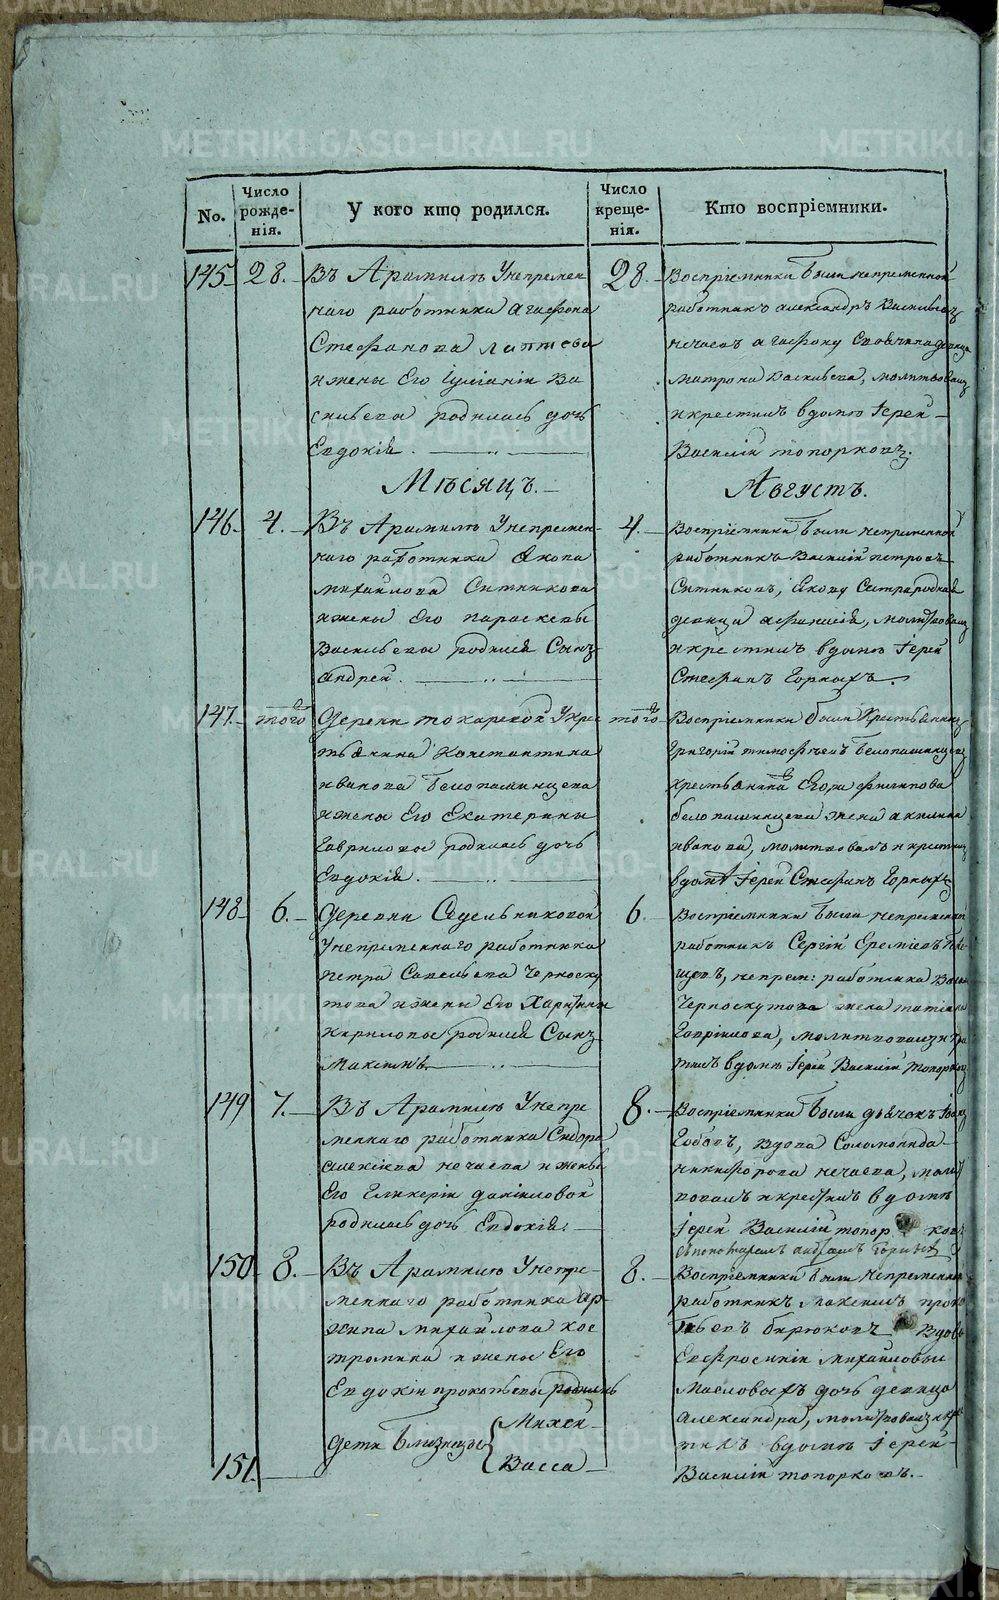 No.
Число рожденія.
У кого кто родился.
Число крещенія.
Кто воспріемники.
145. 28.
Въ Арамилѣ Унепремен
наго работника Агафона
Стефанова Лаптева
и жены Его Іуліаніи Ва
сильевы родилась дочь
Евдокія.
28.
Воспріемники были непременной
работникъ александръ Васильевъ
нечаевъ агафону
матрона Васильева, молитвовалъ
и крестилъ вдомѣ Іерей
Василій топорковъ.
Мѣсяцъ.
Августъ.
146. 4.
Въ Арамилѣ Унепремен
наго работника Якова
михайлова Ситникова
и жены Его параскевы
Васильевы родился Сынъ
андрей.
4.
Воспріемники были непременной
работникъ Василій петровъ
Ситниковъ, Якову Сестра родная
девица афанасія, молитвовалъ
и крестилъ вдомѣ Іерей
Стефанъ Горныхъ.
147. того
Деревни токаревой Укре
стьянина Константина
иванова Белопашинцева
и жены Его Екатерины
Гавриловой родилась дочь
Евдокія
того
Воспріемники были Крестьянинъ
Григорій тимофѣевъ Белопашинцевъ
крестьянина Егора филипова
белопашинцева жена акилина
иванова, молитвовалъ и крестилъ
вдомѣ Іерей Стефанъ Горныхъ
148. 6.
Деревни Седельниковой
Унепременнаго работника
петра Савельева Черноску
това и жены Его Харитины
Кириловы родился Сынъ
Максимъ.
6.
Воспріемники были непременной
работникъ Сергій Еремѣевъ
непрем: работника
Черноскутова жена татіана
Гавріилова, молитвовалъ и кре
тилъ вдомѣ Іерей Василій топорковъ
149. 7.
Въ Арамилѣ Унепре
меннаго работника Сидора
алексіева нечаева и жены
Его Гликеріи даніиловой
родилась дочь Евдокія.
8.
Воспріемники были дьячокъ
вдова Соломонида
никифорова нечаева, молит
вовалъ и крестилъ вдомѣ
Іерей Василій топорковъ
150. 8.
Въ Арамилѣ Унепре
меннаго работника Ар
хипа михайлова кос
тромина и жены Его
Евдокіи прокопьевы родились
дети близнецы
Михей
Васса
8.
Воспріемники были непременной
работникъ максимъ проко
пьевъ бирюковъ вдовы
Евфросиніи михайловы
Масловыхъ дочь девица
александра, молитвовалъ и кре
тилъ вдомѣ Іерей
Василій топорковъ.
151.
METRIKI.GASO-URAL.RU